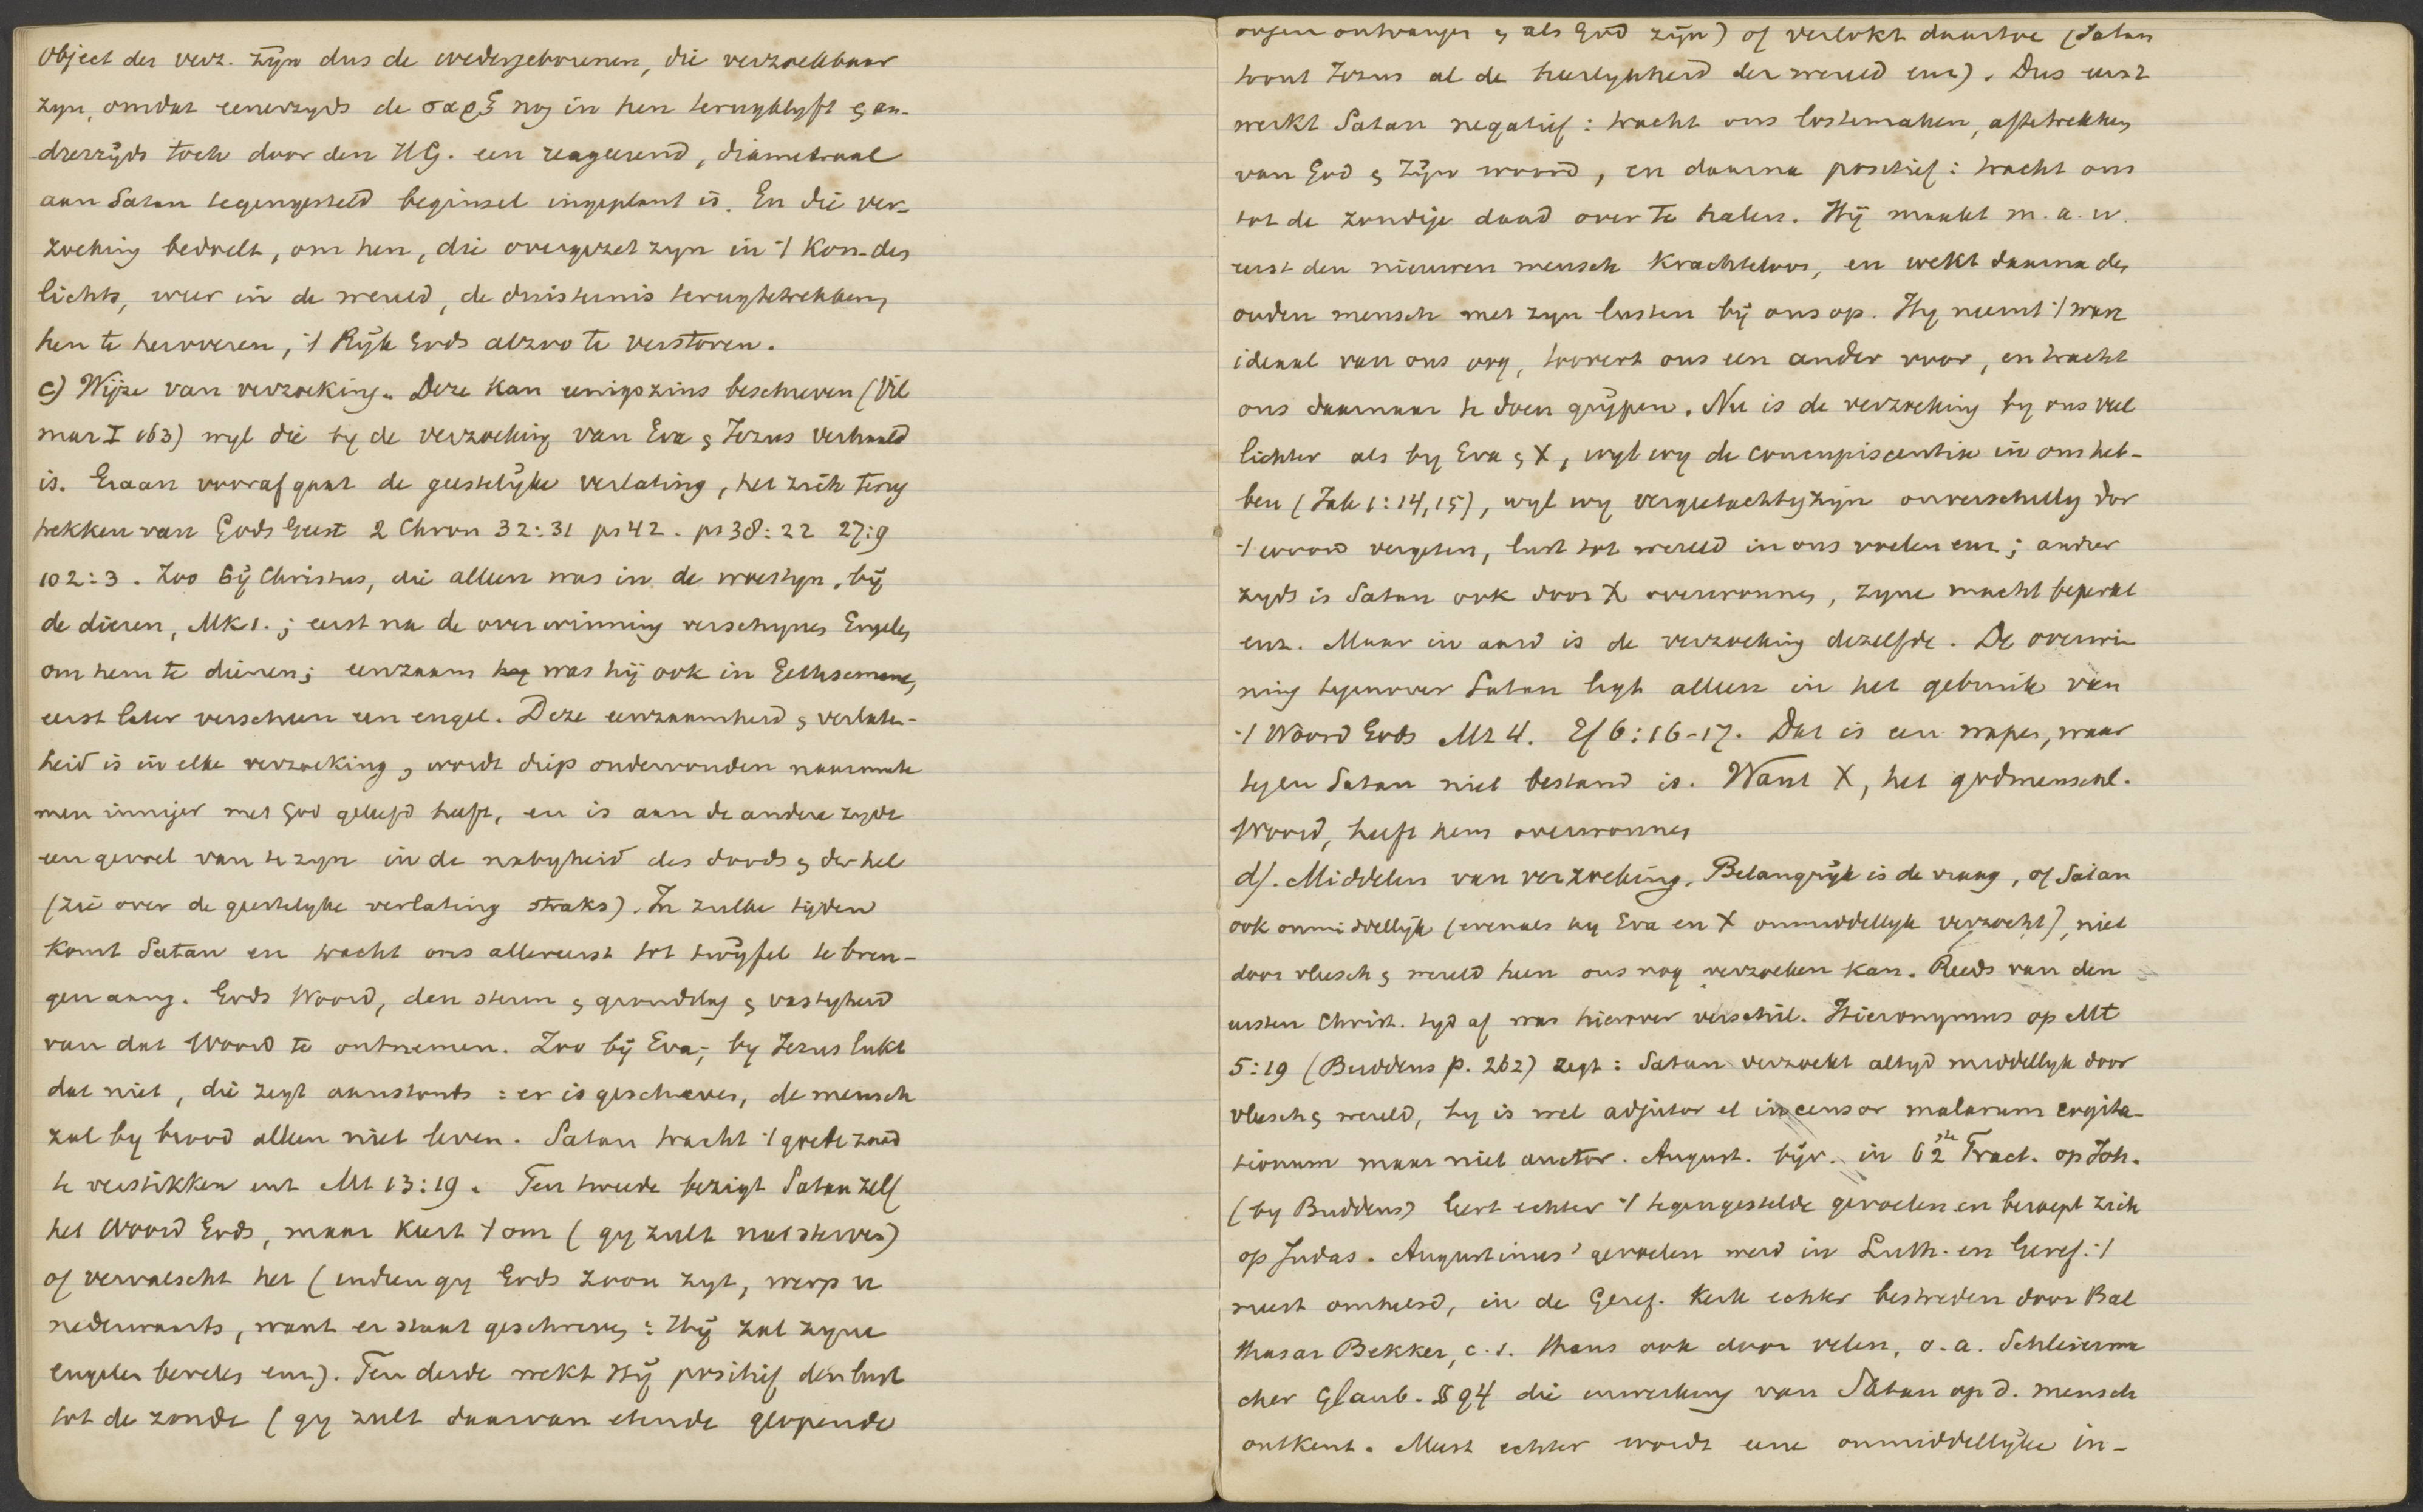 Object der verz. zijn dus de wedergeborenen, die verzoekbaar
zyn, omdat eenerzyds de σαρξ nog in hen terugblyft & an-
drerzijds toch door den HG. een reageerend, diametraal
aan Satan tegengesteld beginsel ingeplant is. En die ver-
zoeking bedoelt, om hen, die overgezet zyn in 't Kon. des
lichts, weer in de wereld, de duisternis terugtetrekken,
hen te heroveren, 't Rijk Gods alzoo te verstoren.
c) Wijze van verzoeking. Deze kan eenigszins beschreven (Vil
mar I 163) wyl die by de verzoeking van Eva & Jezus verhaald
is. Eraan vooraf gaat de geestelijke verlating, het zich terug
trekken van Gods Geest 2 Chron 32:31 ps 42. ps 38:22 27:9
102:3. Zoo bij Christus, die alleen was in de woestyn, bij
de dieren, Mk 1.; eerst na de overwinning verschynen Engelen
om hem te dienen; eenzaam was hij ook in Gethsemane,
eerst later verscheen een engel. Deze eenzaamheid & verlaten-
heid is in elke verzoeking, wordt diep ondervonden naarmate
men inniger met God geleefd heeft, en is aan de andere zyde
een gevoel van te zyn in de nabyheid des doods & der hel
(zie over de geestelyke verlating straks). In zulke tijden
komt Satan en tracht ons allereerst tot twijfel te bren-
gen aang. Gods Woord, den steun & grondslag & vastigheid
van dat Woord te ontnemen. Zoo bij Eva; by Jezus lukt
dat niet, die zegt aanstonds: er is geschreven, de mensch
zal by brood alleen niet leven. Satan tracht 't goede zaad
te verstikken enz Mt 13:19. Ten tweede bezigt Satan zelf
het Woord Gods, maar keert 't om (gy zult niet sterven)
of vervalscht het (indien gy Gods zoon zyt, werp u
nederwaarts, want er staat geschreven: Hij zal zyne
engelen bevelen enz). Ten derde wekt Hij positief den lust
tot de zonde (gy zult daarvan etende geopende
oogen ontvangen & als God zijn) of verlokt daartoe (Satan
toont Jezus al de heerlykheid der wereld enz). Dus eerst
werkt Satan negatief: tracht ons lostemaken, aftetrekken
van God & Zijn woord, en daarna positief: tracht ons
tot de zondige daad over te halen. Hij maakt m.a.w.
eerst den nieuwen mensch krachteloos, en wekt daarna den
ouden mensch met zyn lusten bij ons op. Hy neemt 't ware
ideaal van ons weg, toovert ons een ander voor, en tracht
ons daarnaar te doen grijpen. Nu is de verzoeking by ons veel
lichter als by Eva & X, wyl wy de concupiscentia in ons heb-
ben (Jak 1:14,15), wyl wy vergeetachtig zijn onverschillig door
't woord vergeten, lust tot wereld in ons voelen enz; ander
zyds is Satan ook door X overwonnen, zyne macht beperkt
enz. Maar in aard is de verzoeking dezelfde. De overwin
ning tegenover Satan ligt alleen in het gebruik van
't Woord Gods Mt 4. Ef 6:16-17. Dat is een wapen, waar
tegen Satan niet bestand is. Want X, het godmenschl.
Woord, heeft hem overwonnen
d). Middelen van verzoeking. Belangrijk is de vraag, of Satan
ook onmiddellijk (evenals hy Eva en X onmiddellyk verzocht), niet
door vleesch & wereld heen ons nog verzoeken kan. Reeds van den
eersten Christ. tyd af was hierover verschil. Hieronymus op Mt
5:19 (Buddeus p. 262) zegt: Satan verzoekt altyd middellyk door
vleesch & wereld, hy is wel adjutor et incensor malarum cogita-
tionum maar niet auctor. August. bijv. in 62ste Tract. op Joh.
(by Buddeus) leert echter 't tegengestelde gevoelen en beroept zich
op Judas. Augustinus' gevoelen werd in Luth. en Geref. 't
meest omhelsd, in de Geref. kerk echter bestreden door Bal
thasar Bekker, c.s. thans ook door velen, o.a. Schleierma
cher Glaub. § 94 die inwerking van Satan op d. mensch
ontkent. Meest echter wordt eene onmiddellijke in-